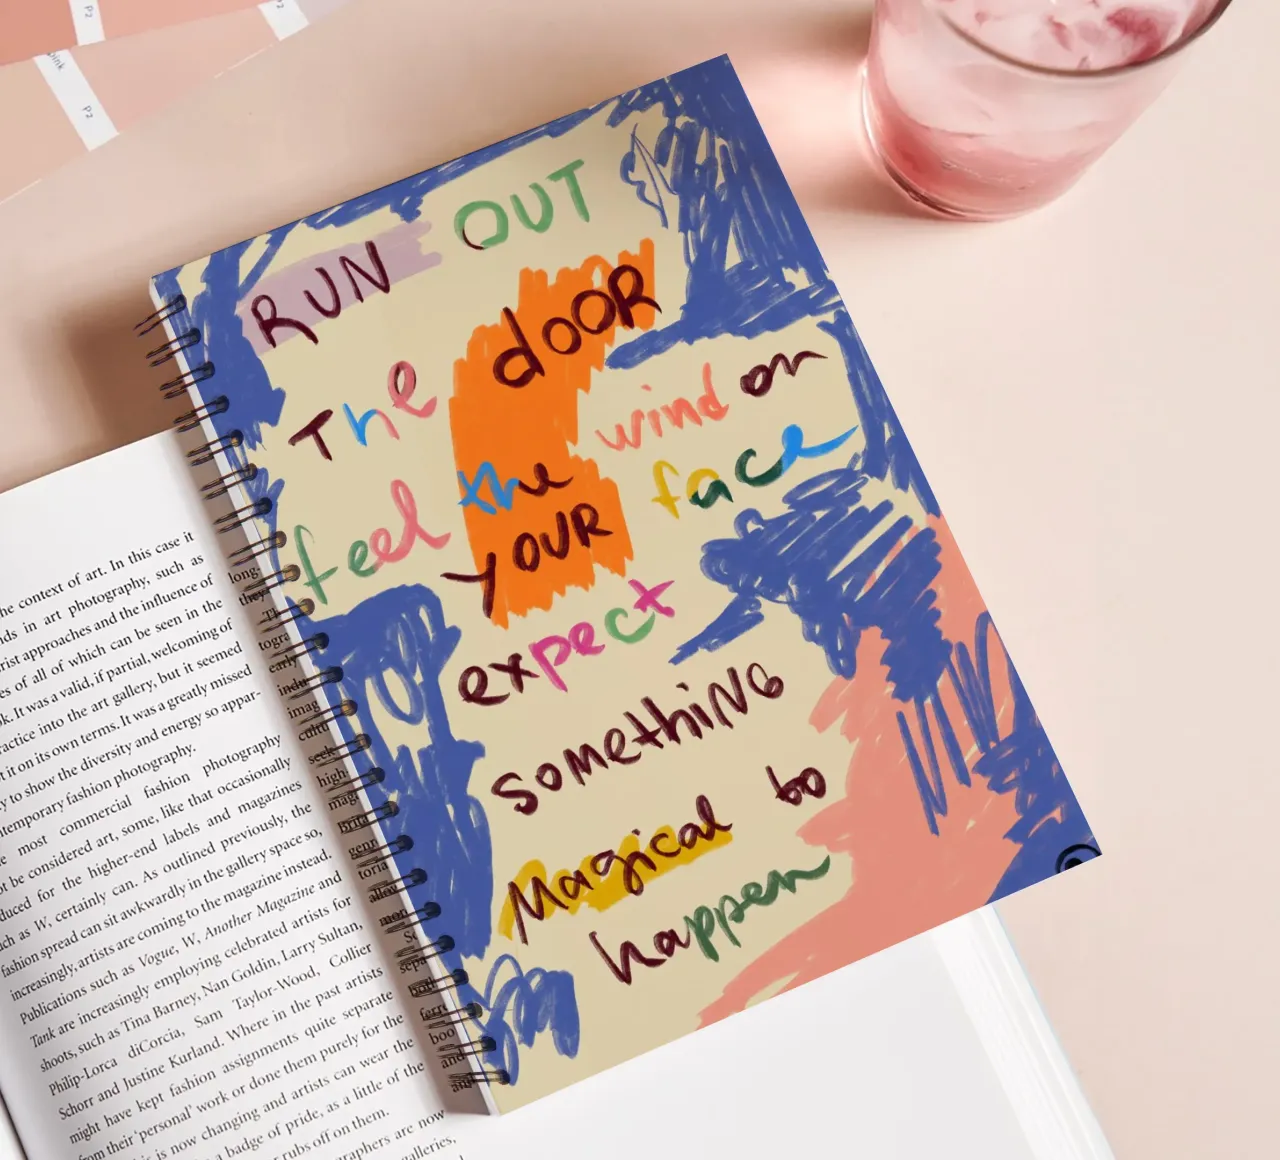 RUN OUT
The dOOR
feel the wind on
YOUR face
expect
somethiNG
Magical to
happen
P2
P2
context of art. In this case it
in art photography, such as
approaches and the influence of
of all of which can be seen in the
It was a valid, if partial, welcoming of
into the art gallery, but it seemed
it on its own terms. It was a greatly missed
to show the diversity and energy so appar-
fashion photography.
most commercial fashion photography
be considered art, some, like that occasionally
for the higher-end labels and magazines
as W, certainly can. As outlined previously, the
fashion spread can sit awkwardly in the gallery space so,
increasingly, artists are coming to the magazine instead.
Publications such as Vogue, W, Another Magazine and
Tank are increasingly employing celebrated artists for
shoots, such as Tina Barney, Nan Goldin, Larry Sultan,
Philip-Lorca diCorcia, Sam Taylor-Wood, Collier
Schorr and Justine Kurland. Where in the past artists
might have kept fashion assignments quite separate
from their 'personal' work or done them purely for the
is now changing and artists can wear the
a badge of pride, as a little of the
rubs off on them.
are now
galleries,